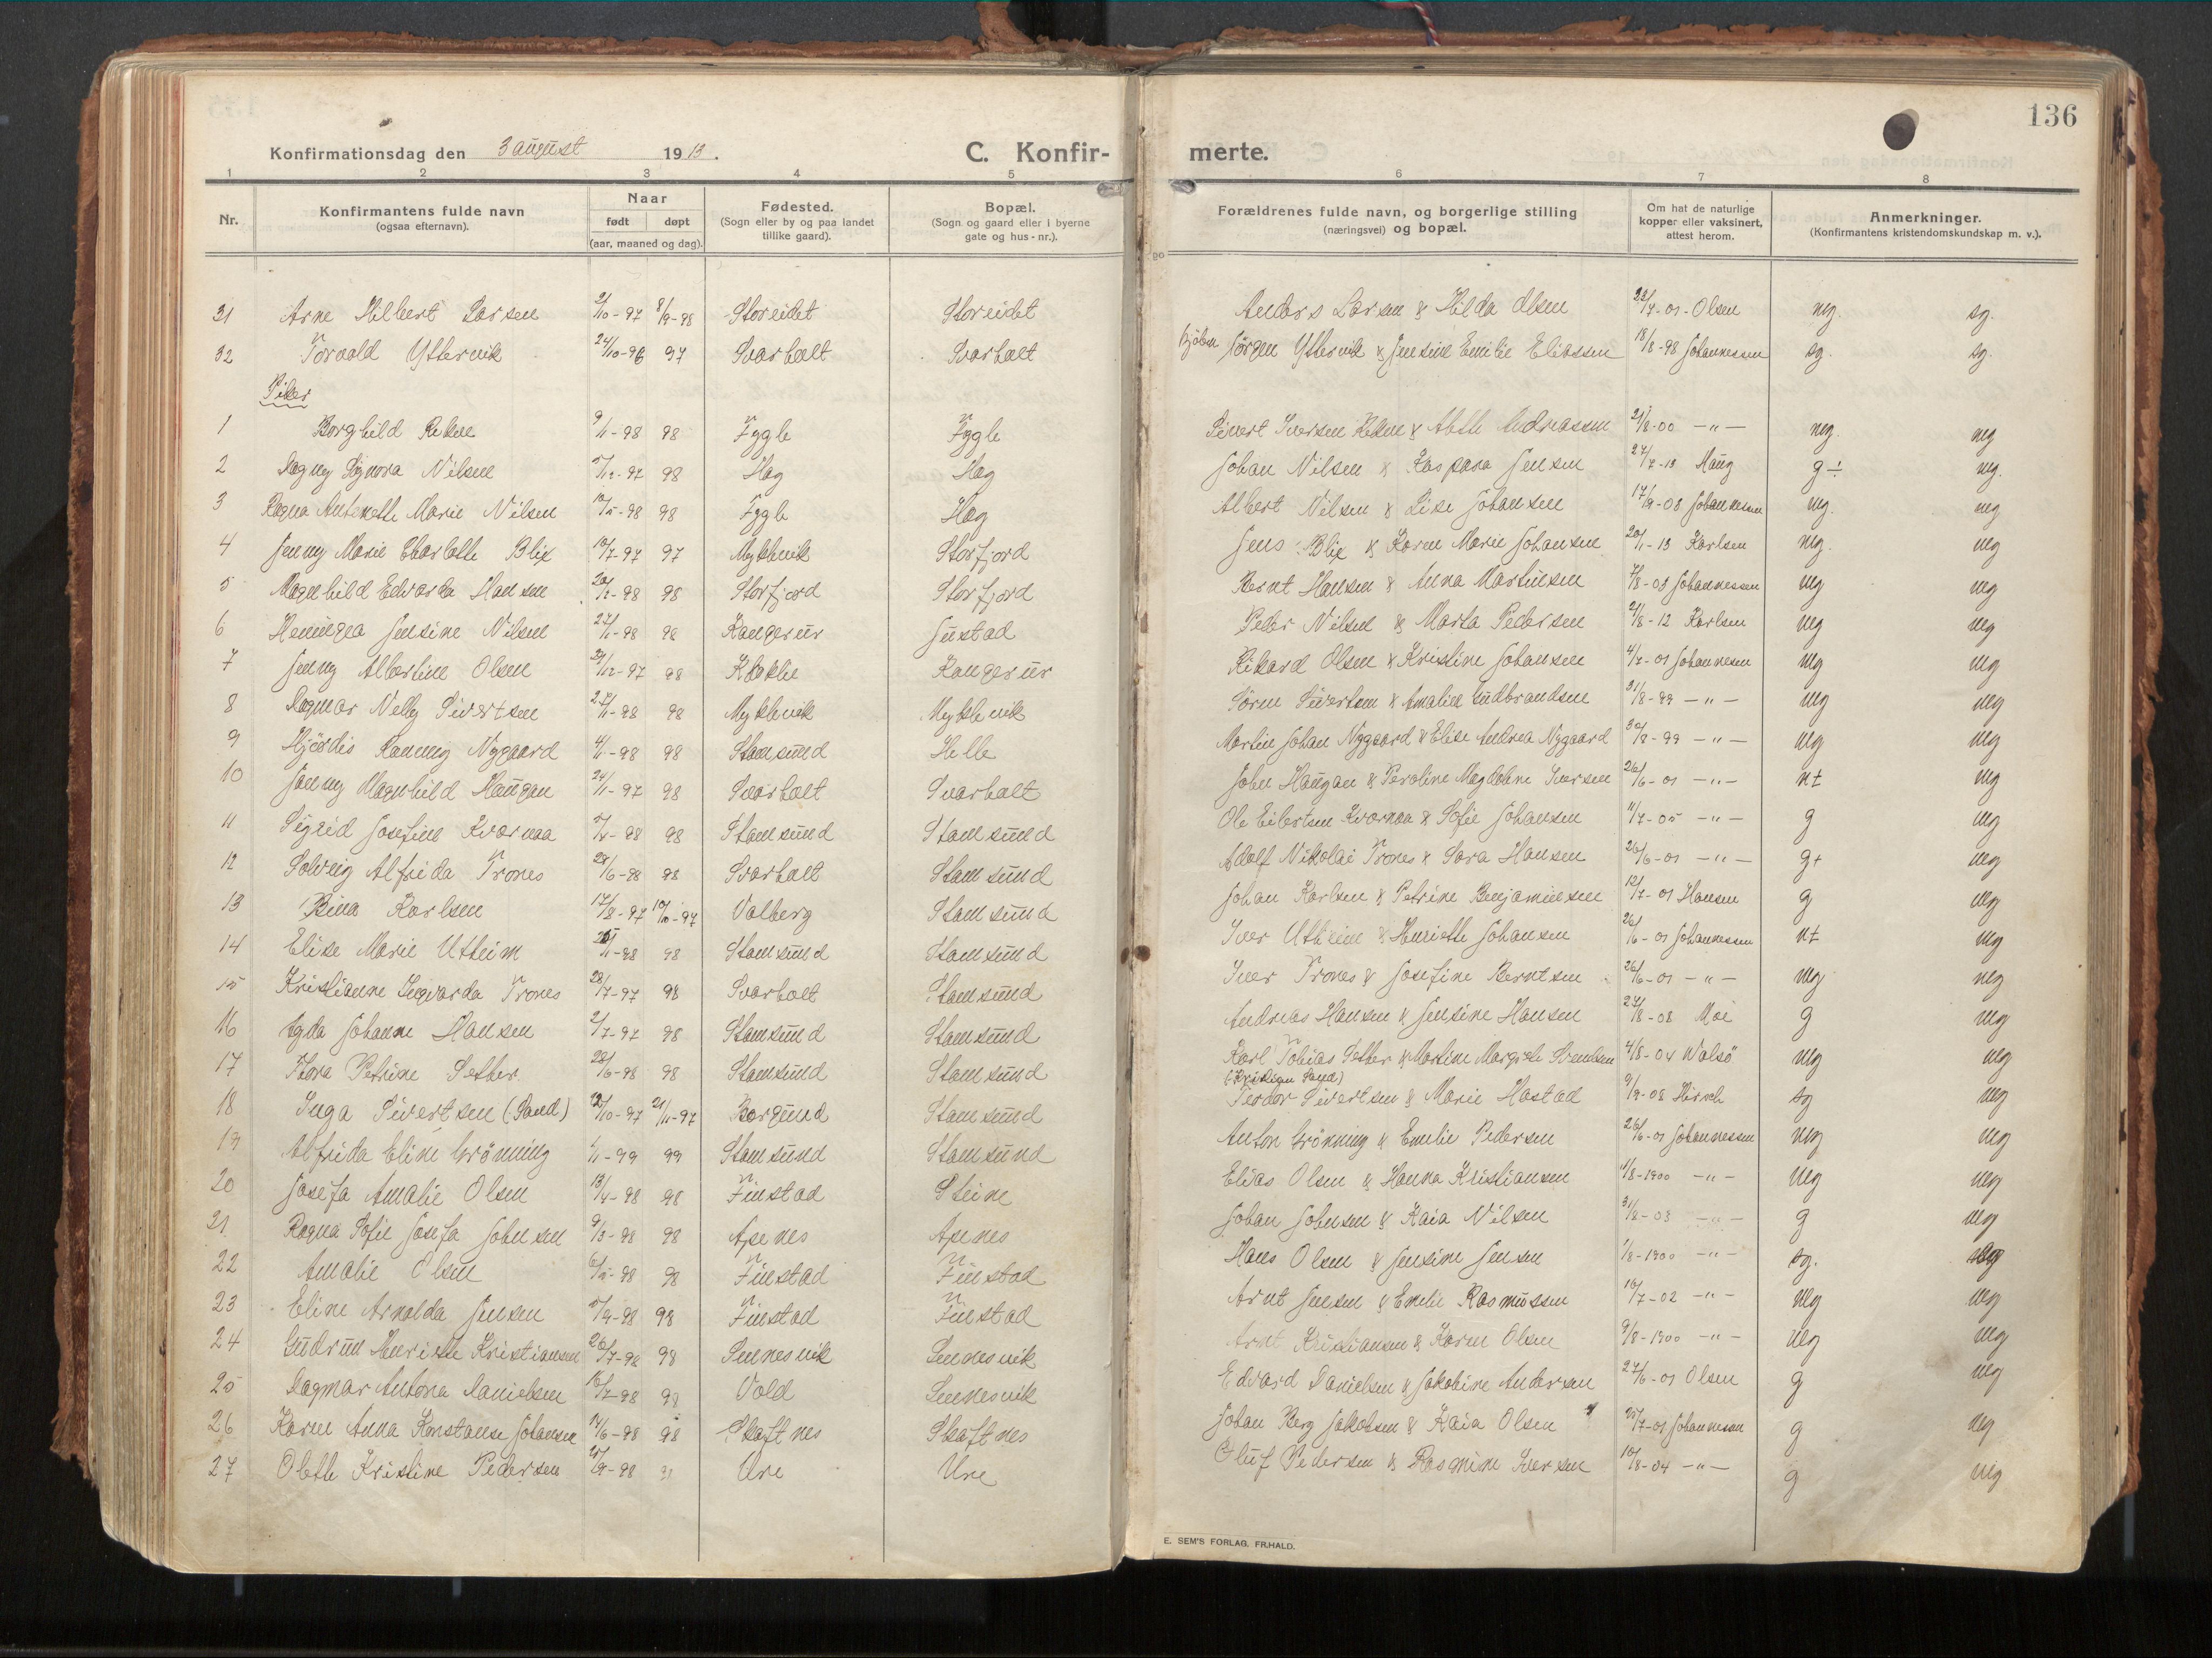 136
Konfirmationsdag den 3 august 1913.
C. Konfir-
merte.
1 2 3 4 5 6 7 8
Nr.
Konfirmantens fulde navn
(ogsaa efternavn).
Naar
født døpt
(aar, maaned og dag).
Fødested.
(Sogn eller by og paa landet
tillike gaard).
Bopæl.
(Sogn og gaard eller i byerne
gate og hus-nr.).
Forældrenes fulde navn, og borgerlige stilling
(næringsvei) og bopæl.
Om hat de naturlige
kopper eller vaksinert,
attest herom.
Anmerkninger.
(Konfirmantens kristendomskundskap m. v.).
31 Arne Hilbert Larsen 2/10-97 8/9-98 Storeidet Storeidet Anders Larsen & Hilda Olsen 22/7-01-Olsen mg. sg.
32 Torvald Yttervik 24/10-96 97 Svarholt Svarholt Jörgen Yttervik & Jensine Emilie Eliassen 18/8-98 Johannessen sg. sg.
Piker
1 Borghild Rekne 9/1-98 98 Fygle Fygle Sivert Iversen Rekne & Abeth Andreassen 21/8-00 -"- mg. mg
2 Dagny Signora Nilsen 5/12-97 98 Hag Hag Johan Nilsen & Kaspara Jensen 27/7-13 Haug g÷ mg.
3 Ragna Antonette Marie Nilsen 10/5-98 98 Fygle Hag Albert Nilsen & Lise Johansen 17/9-08 Johannessen mg. mg
4 Jenny Marie Charlotte Blix 10/7-97 97 Myklevik Storfjord Jens Blix & Karen Marie Johansen 20/1-13 Karlsen mg. mg
5 Magnhild Edvarda Hansen 20/2-98 98 Storfjord Storfjord Bernt Hansen & Anna Martinsen 7/8-03 Johannessen mg mg
6 Hemingea Jensine Nilsen 27/1-98 98 Kangerur Justad Peder Nilsen & Marta Pedersen 2/8-12 Karlsen mg mg
7 Jenny Albertine Olsen 29/12-97 98 Kangerur Rikard Olsen & Kristine Johansen 4/7-01 Johannessen mg mg
8 Dagmar Nelly Sivertsen 27/1-98 98 Myklevik Myklevik Sören Sivertsen & Amalie Gudbrandsen 31/8-99 -"- mg mg
9 Hjördis Ranveig Nygaard 4/1-98 98 Stamsund Helle Martin Johan Nygaard & Elise Andrea Nygaard 30/8-99 -"- mg mg
10 Jenny Magnhild Haugan 24/11-97 98 Svarholt Svarholt John Haugan & Peroline Magdalene Iversen 26/6-01 -"- nt mg
11 Sigrid Josefine Kvarnaa 5/4-98 98 Stamsund Stamsund Ole Eilertsen Kvarnaa & Sofie Johansen 11/7-05 -"- g mg
12 Solveig Alfrida Trones 28/6-98 98 Svarholt Stamsund Adolf Nikolai Trones & Sara Hansen 26/6-01 -"- g+ mg
13 Bina Karlsen 17/8-97 10/10-97 Valberg Stamsund Johan Karlsen & Petrine Benjaminsen 12/7-01 Hansen g mg
14 Elise Marie Utheim /1-98 98 Stamsund Stamsund Iver Utheim & Henriette Johansen 26/6-01 Johannessen nt mg
15 Kristianne Ingvarda Trones 28/7-97 98 Svarholt Stamsund Iver Trones & Josefine Berntsen 26/6-01 -"- mg mg
16 Agda Johanne Hansen 2/7-97 98 Stamsund Stamsund Andreas Hansen & Jensine Hansen 27/8-08 Moe g mg
17 Thora Petrine Sether 28/6-98 98 Stamsund Stamsund Karl Tobias Sether & Martine Margrete Svendsen 4/8-04 Walsö mg mg
(Kristian Sand)
18 Inga Sivertsen (Sand) 12/10-97 21/11-97 Borgund Stamsund Peder Sivertsen & Marie Hastad 9/9-08 Hirsch sg mg
19 Alfrida Eline Grönning 1/1-99 99 Stamsund Stamsund Anton Grönning & Emelie Pedersen 26/6-01 Johannessen mg mg
20 Josefa Amalie Olsen 13/4-98 98 Finstad Steine Elias Olsen & Hanna Kristiansen 1/8-1900 -"- mg mg
21 Ragna Sofie Josefa Johnsen 9/3-98 98 Apenes Apenes Johan Johnsen & Kaia Nilsen 31/8-03 -"- g mg
22 Amalie Olsen 6/5-98 98 Finstad Finstad Hans Olsen & Jensine Jensen 1/8-1900 -"- sg. sg
23 Eline Arnolda Jensen 5/9-98 98 Finstad Finstad Arnt Jensen & Emelie Rasmussen 16/7-02 -"- mg mg
24 Gudrun Henriette Kristiansen 26/7-98 98 Sennesvik Sennesvik Arnt Kristiansen & Karen Olsen 9/8-1900 -"- mg mg
25 Dagmar Antona Danielsen 16/7-98 98 Vold Sennesvik Edvard Danielsen & Jakobine Andersen 27/6-01 Olsen g mg
26 Karen Anna Konstanse Johansen 14/6-98 98 Skaftnes Skaftnes Johan Berg Jakobsen & Kaia Olsen 25/7-01 Johannessen g mg
27 Olette Kristine Pedersen 25/9-98 Ure Ure Oluf Pedersen & Rasmine Iversen 10/8-04 -"- g mg
E. SEM'S FORLAG, FR.HALD.